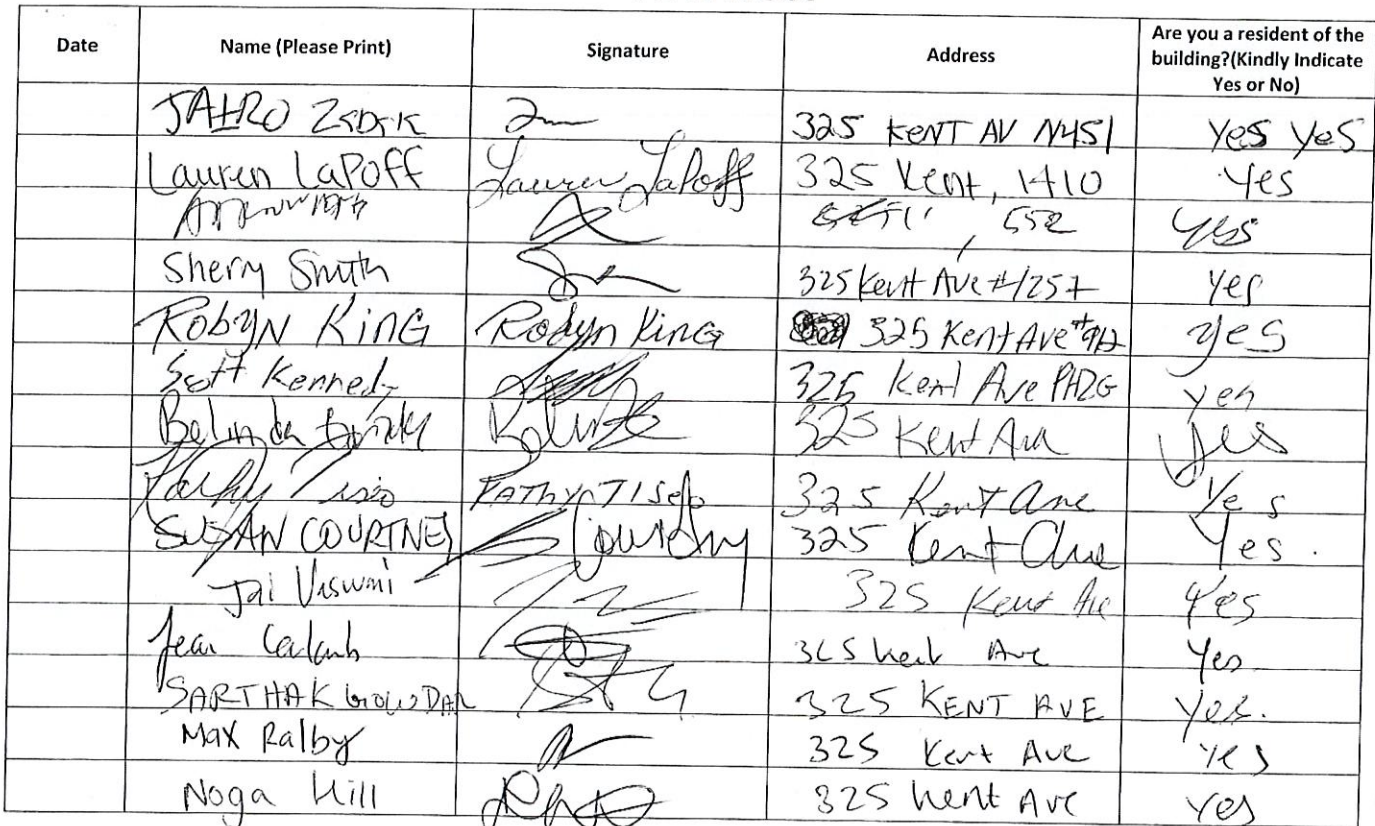 Date Name (Please Print) Signature Address Are you a resident of the building?(Kindly Indicate Yes or No)
JAIRO 325 KENT AV N451 Yes Yes
Lauren LaPoff Lauren LaPoff 325 Kent, 1410 Yes
552 Yes
Sherry Smith 325 Kent Ave #1257 Yes
Robyn King Robyn King 325 Kent Ave #912 yes
Scott Kennedy 325 Kent Ave PH2G yes
Belinda 325 Kent Ave yes
Kathy 325 Kent Ave Yes
SUSAN COURTNEY Courtney 325 Kent Ave Yes.
Jai 325 Kent Ave Yes
Jean Kent Ave Yes
SARTHAK GOWDAR 325 KENT AVE Yes.
Max Ralby 325 Kent Ave Yes
Noga Hill 325 Kent Ave Yes